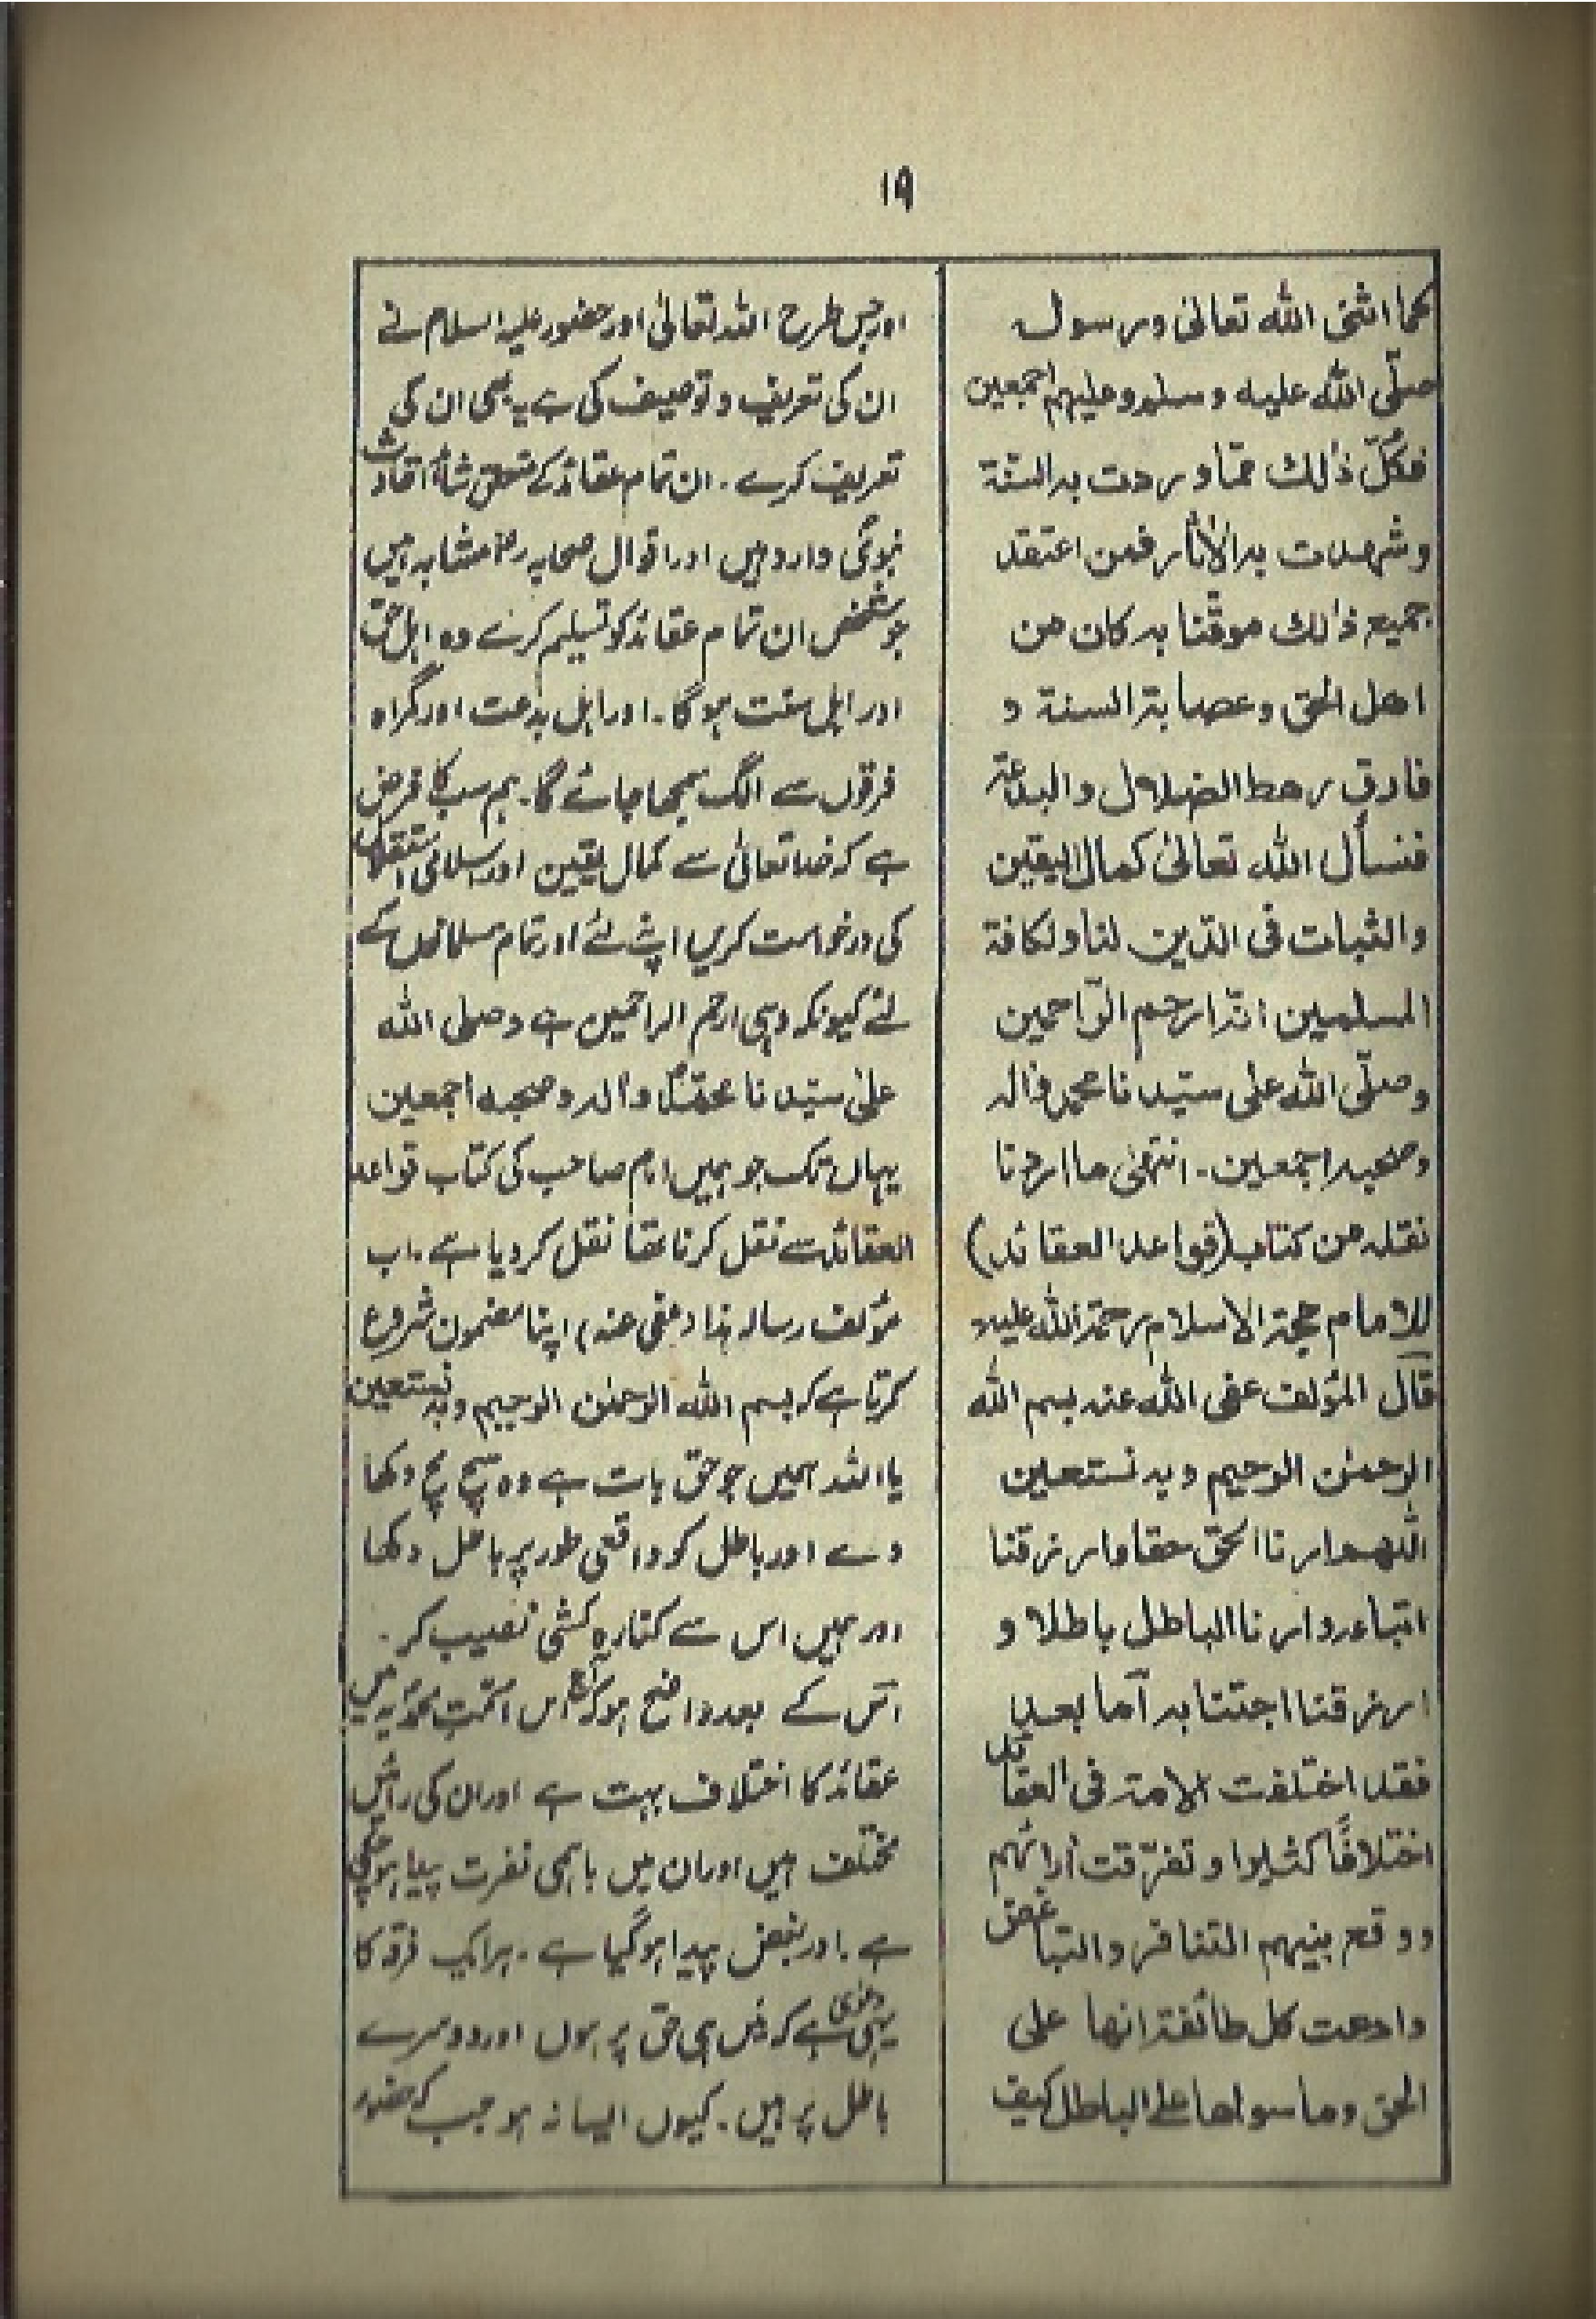 ۱۹
كما اثنى الله تعالىٰ ورسول
صلّى الله عليه وسلم وعليهم اجمعين
فكلّ ذٰلك ممّا وردت به السنّة
وشهدت به الاٰثار فمن اعتقد
جميع ذٰلك موقنا به كان من
اهل الحق وعصابة السنة و
فارق رهط الضلال والبدعة
فنسأل الله تعالىٰ كمال اليقين
والثبات فى الدّين لنا ولكافة
المسلمين انّه ارحم الرّاحمين
وصلّى الله على سيّدنا محمد واٰله
وصحبه اجمعين۔ انتهىٰ ما اردنا
نقله من كتاب (قواعد العقائد)
للامام حجة الاسلام رحمة الله عليه
قال المؤلف عفى الله عنه بسم الله
الرحمٰن الرحيم وبه نستعين
اللّهم ارنا الحق حقا وارزقنا
اتباعه وارنا الباطل باطلا و
ارزقنا اجتنابه اما بعد
فقد اختلفت الامة فى العقائد
اختلافًا كثيرا وتفرّقت اٰرائهم
ووقع بينهم التنافر والتباغض
وادعت كل طائفة انها على
الحق وما سواها على الباطل كيف
اور جس طرح اللہ تعالیٰ اور حضور علیہ السلام نے
ان کی تعریف و توصیف کی ہے یہ بھی ان کی
تعریف کرے۔ ان تمام عقائد کے متعلق
نبویؐ وارد ہیں اور اقوال صحابہ رضؓ شاہد ہیں
جو شخص ان تمام عقائد کو تسلیم کرے وہ اہل حق
اور اہل سنت ہوگا۔ اور اہل بدعت اور گمراہ
فرقوں سے الگ سمجھا جائے گا۔ ہم سب کا فرض
ہے کہ خدا تعالیٰ سے کمال یقین اور اسلامی استقلال
کی درخواست کریں اپنے لئے اور تمام مسلمانوں کے
لئے کیونکہ وہی ارحم الراحمین ہے وصلی اللہ
علیٰ سیّدنا محمّدٍ واٰلہ وصحبہ اجمعین
یہاں تک جو ہمیں امام صاحب کی کتاب قواعد
العقائد سے نقل کرنا تھا نقل کر دیا ہے۔ اب
مؤلف رسالہ ہذا (عفی عنہ) اپنا مضمون شروع
کرتا ہے کہ بسم اللہ الرحمٰن الرحیم وبہ نستعین
یا اللہ ہمیں جو حق بات ہے وہ سچ سچ دکھا
دے اور باطل کو واقعی طور پر باطل دکھا
اور ہمیں اس سے کنارہ کشی نصیب کر۔
اس کے بعد واضح ہو کہ آج اس امّتِ محمّدیہ میں
عقائد کا اختلاف بہت ہے اور ان کی رائیں
مختلف ہیں اور ان میں باہمی نفرت پیدا ہو چکی
ہے۔ اور بغض پیدا ہو گیا ہے۔ ہر ایک فرقہ کا
یہی دعویٰ ہے کہ میں ہی حق پر ہوں اور دوسرے
باطل پر ہیں۔ کیوں ایسا نہ ہو جب کہ حضور